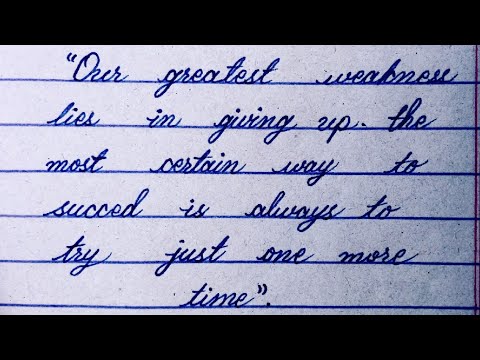 "Our greatest weakness
lies in giving up. the
most certain way to
succed is always to
try just one more
time".